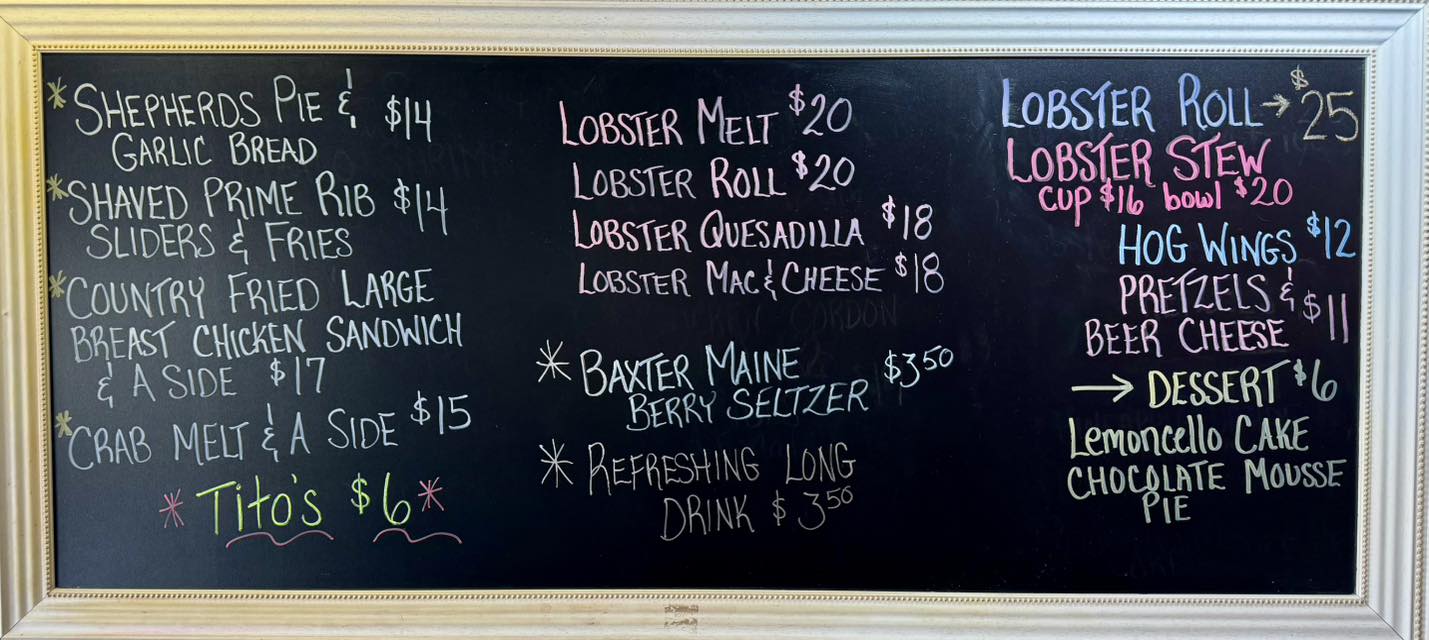 * SHEPHERDS PIE & $14
GARLIC BREAD
* SHAVED PRIME RIB $14
SLIDERS & FRIES
* COUNTRY FRIED LARGE
BREAST CHICKEN SANDWICH
& A SIDE $17
* CRAB MELT & A SIDE $15
* TITO'S $6 *
LOBSTER MELT $20
LOBSTER ROLL $20
LOBSTER QUESADILLA $18
LOBSTER MAC & CHEESE $18
* BAXTER MAINE $3.50
BERRY SELTZER
* REFRESHING LONG
DRINK $3.50
LOBSTER ROLL → $25
LOBSTER STEW
CUP $16 bowl $20
HOG WINGS $12
PRETZELS & $11
BEER CHEESE
→ DESSERT $6
Lemoncello CAKE
CHOCOLATE MOUSSE
PIE